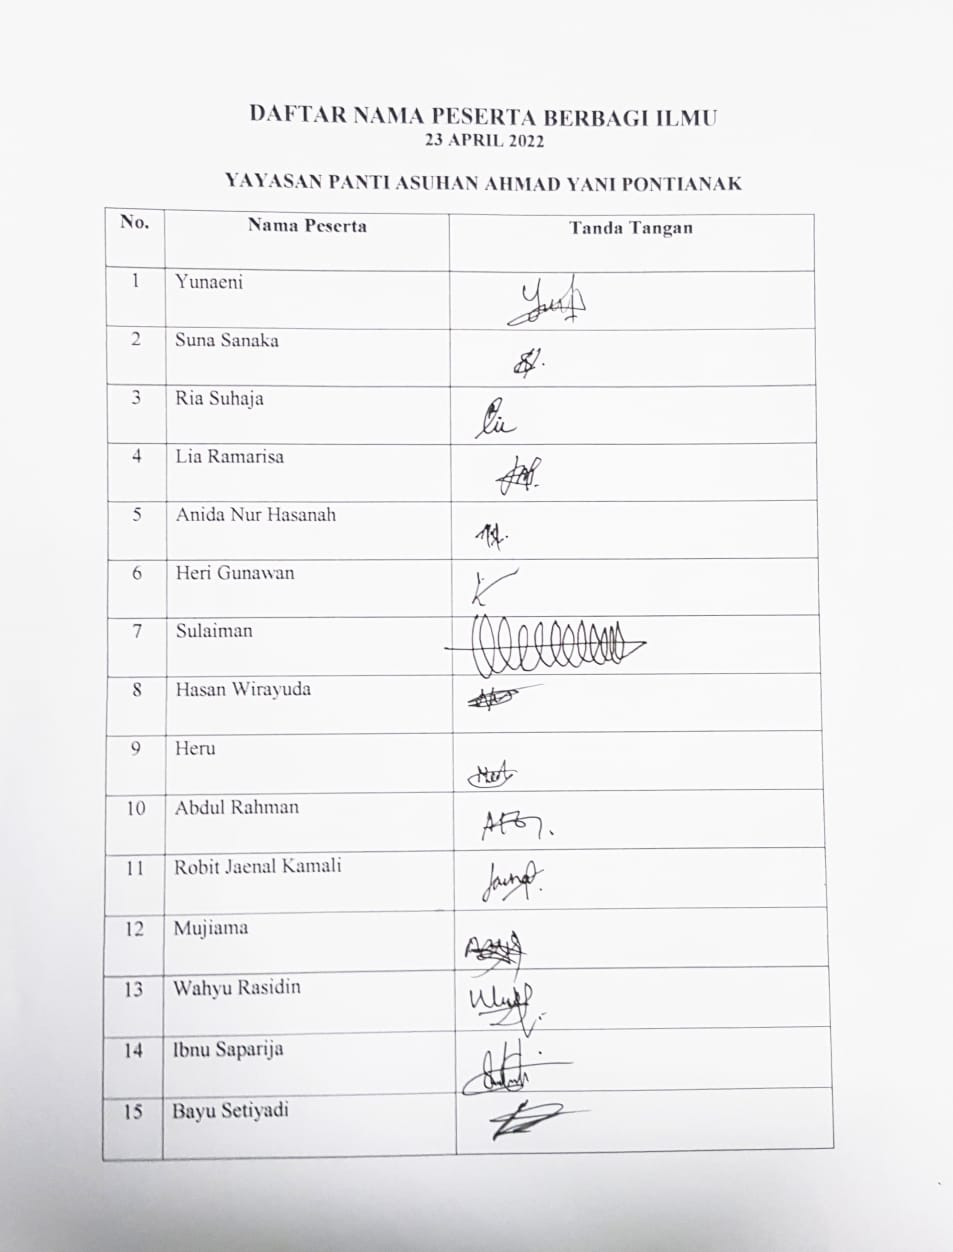 DAFTAR NAMA PESERTA BERBAGI ILMU
23 APRIL 2022
YAYASAN PANTI ASUHAN AHMAD YANI PONTIANAK
No. Nama Peserta Tanda Tangan
1 Yunaeni
2 Suna Sanaka
3 Ria Suhaja
4 Lia Ramarisa
5 Anida Nur Hasanah
6 Heri Gunawan
7 Sulaiman
8 Hasan Wirayuda
9 Heru
10 Abdul Rahman
11 Robit Jaenal Kamali
12 Mujiama
13 Wahyu Rasidin
14 Ibnu Saparija
15 Bayu Setiyadi